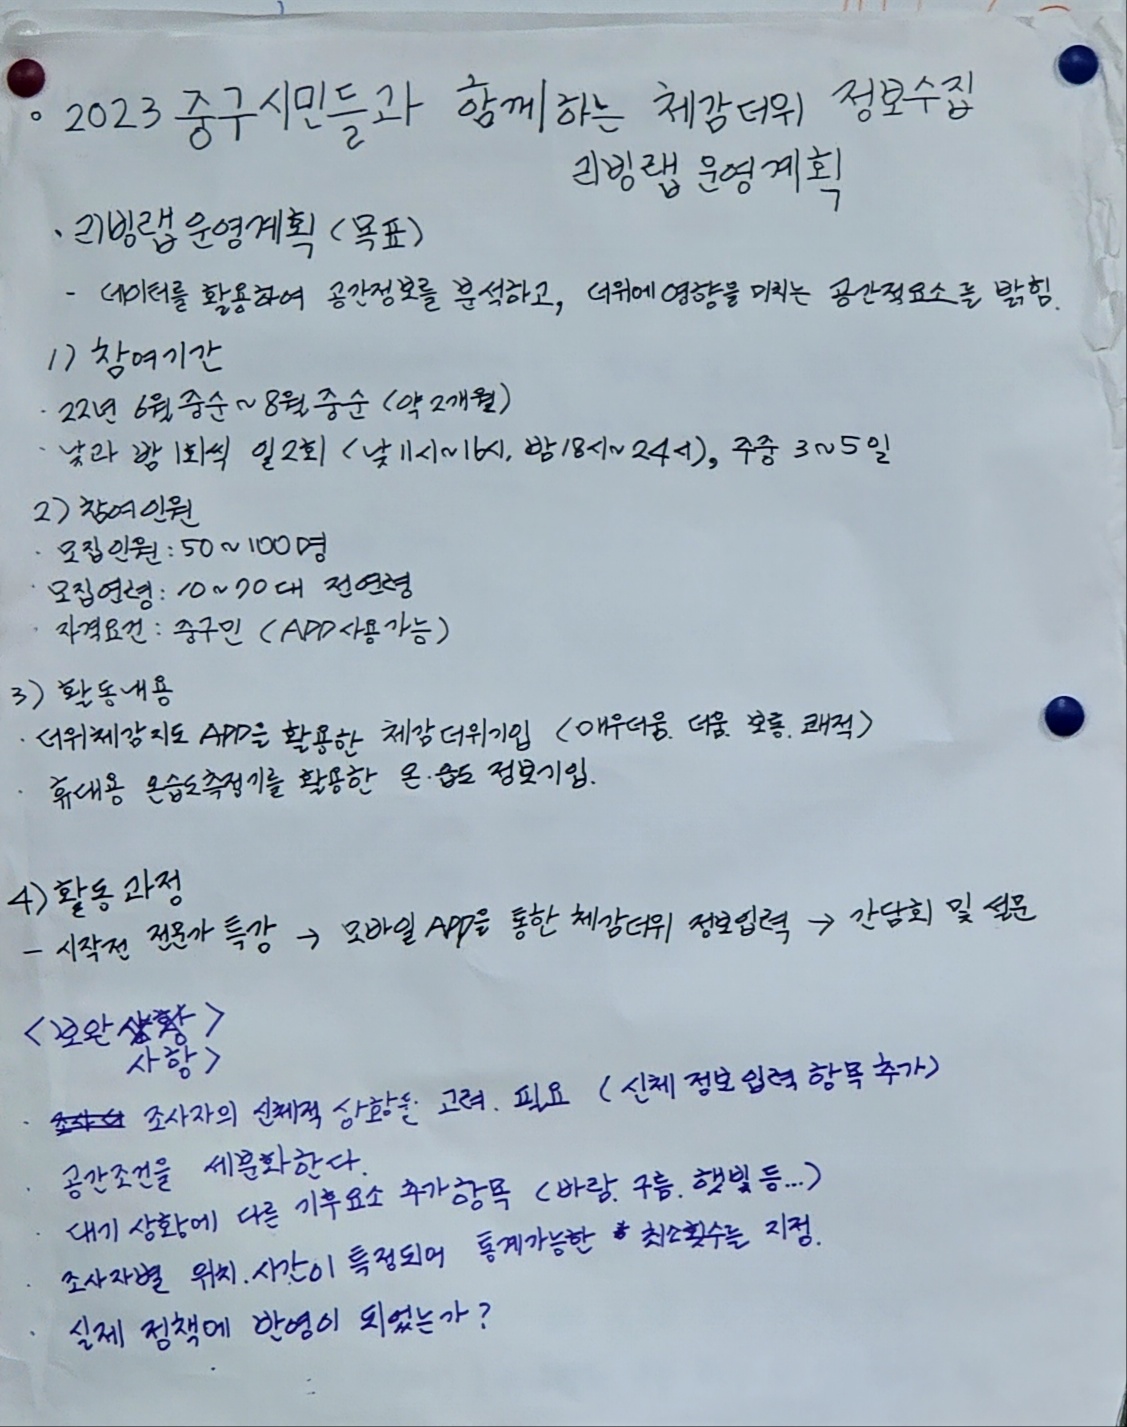 ◦ 2023 중구시민들과 함께하는 체감더위 정보수집
리빙랩 운영계획
· 리빙랩 운영계획 (목표)
- 데이터를 활용하여 공간정보를 분석하고, 더위에 영향을 미치는 공간적요소를 밝힘.
1) 참여기간
· 22년 6월 중순~8월 중순 (약 2개월)
· 낮과 밤 1회씩 일2회 (낮 11시~16시, 밤 18시~24시), 주중 3~5일
2) 참여인원
· 모집인원 : 50~100명
· 모집연령 : 10~70대 전연령
· 자격요건 : 중구민 (APP사용가능)
3) 활동내용
· 더위체감지도 APP을 활용한 체감더위기입 (매우더움. 더움. 보통. 쾌적)
· 휴대용 온습도측정기를 활용한 온·습도 정보기입.
4) 활동 과정
- 시작전 전문가 특강 → 모바일 APP을 통한 체감더위 정보입력 → 간담회 및 설문
<보완 상황>
사항>
· 조사자의 신체적 상황을 고려. 필요 (신체 정보 입력 항목 추가)
· 공간조건을 세분화한다.
· 대기 상황에 다른 기후요소 추가항목 (바람. 구름. 햇빛 등...)
· 조사자별 위치.시간이 특정되어 통계가능한 최소횟수를 지정.
· 실제 정책에 반영이 되었는가?